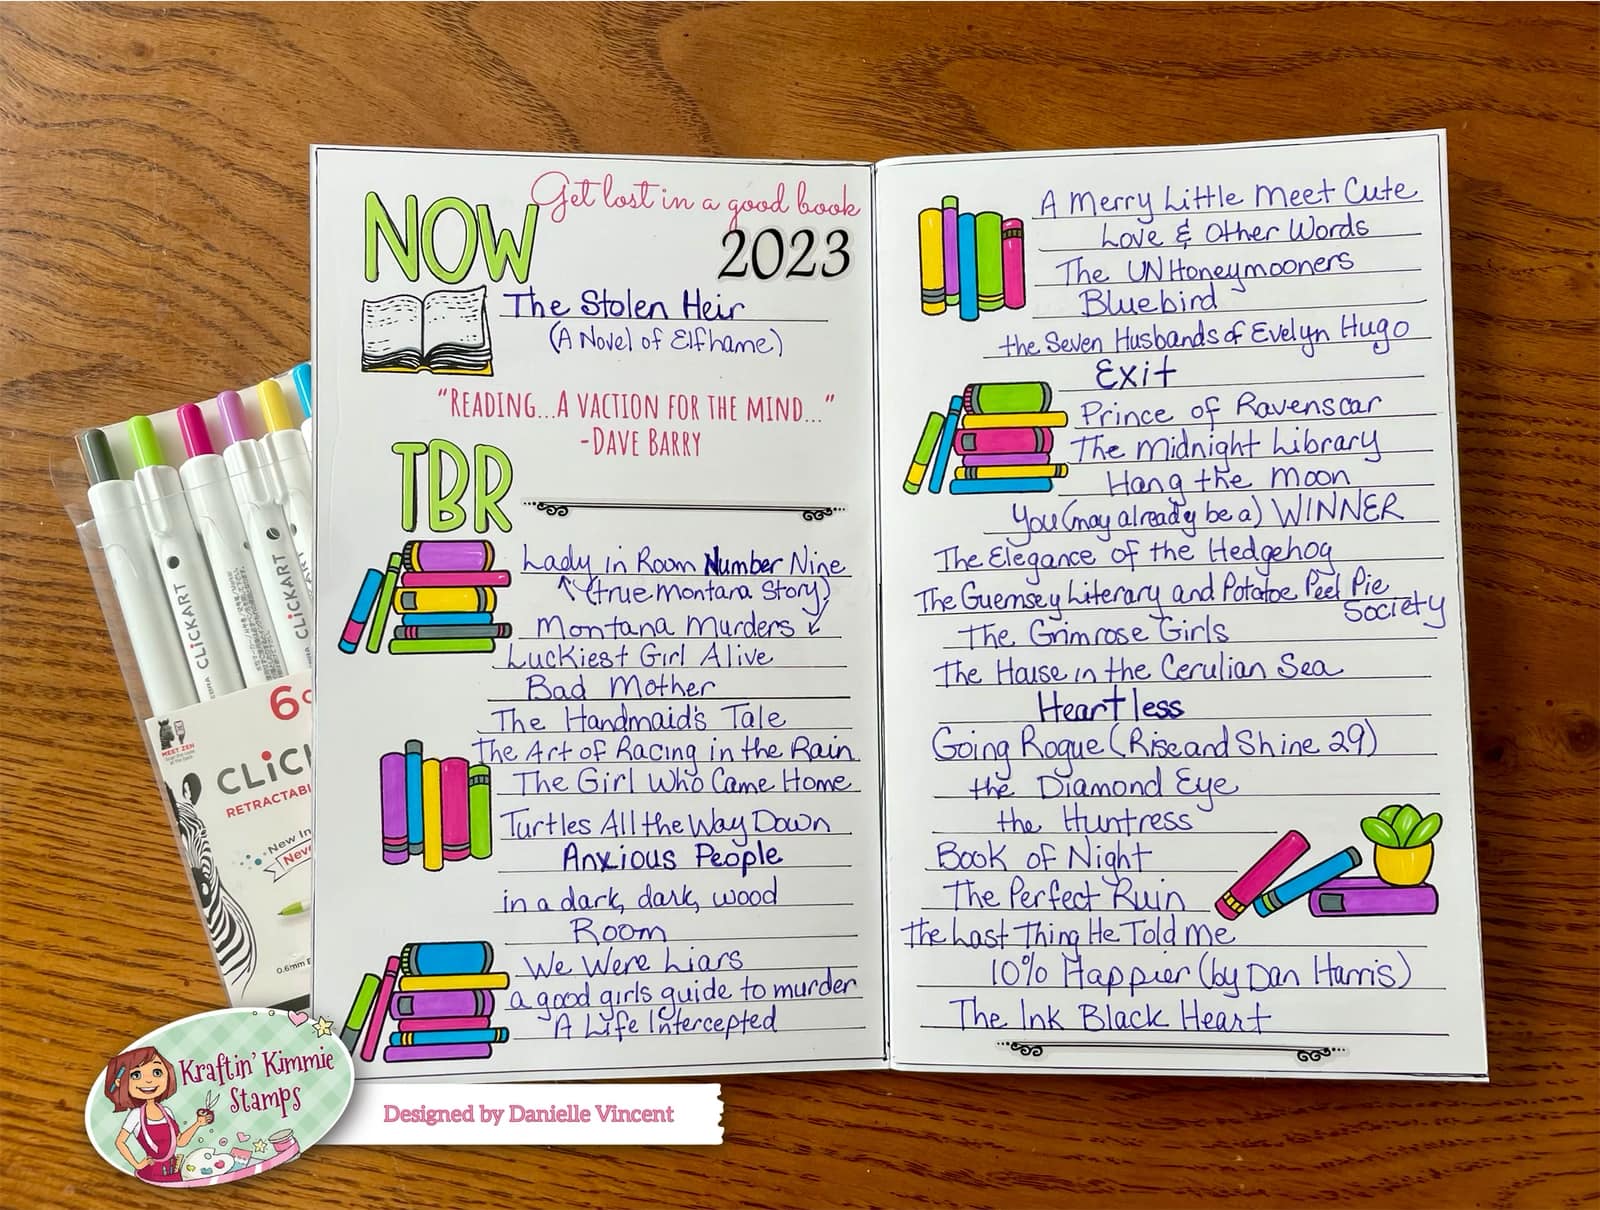 Get lost in a good book
NOW
2023
The Stolen Heir
(A Novel of Elfhame)
"READING...A VACTION FOR THE MIND..."
-DAVE BARRY
TBR
Lady in Room Number Nine
(true montana Story)
Montana Murders
Luckiest Girl Alive
Bad Mother
The Handmaid's Tale
The Art of Racing in the Rain
The Girl Who Came Home
Turtles All the Way Down
Anxious People
in a dark, dark, wood
Room
We Were Liars
a good girls guide to murder
A Life Intercepted
A Merry Little Meet Cute
Love & Other Words
The UNHoneymooners
Bluebird
the Seven Husbands of Evelyn Hugo
Exit
Prince of Ravenscar
The Midnight Library
Hang the Moon
You (may already be a) WINNER
The Elegance of the Hedgehog
The Guernsey Literary and Potatoe Peel Pie
Society
The Grimrose Girls
The House in the Cerulian Sea
Heartless
Going Rogue (Rise and Shine 29)
the Diamond Eye
the Huntress
Book of Night
The Perfect Ruin
the Last Thing He Told me
10% Happier (by Dan Harris)
The Ink Black Heart
CLiCKART
CLiCKART
MEET ZEN
6
CLiC
RETRACTABL
New In
Neve
0.6mm
Kraftin' Kimmie
Stamps
Designed by Danielle Vincent